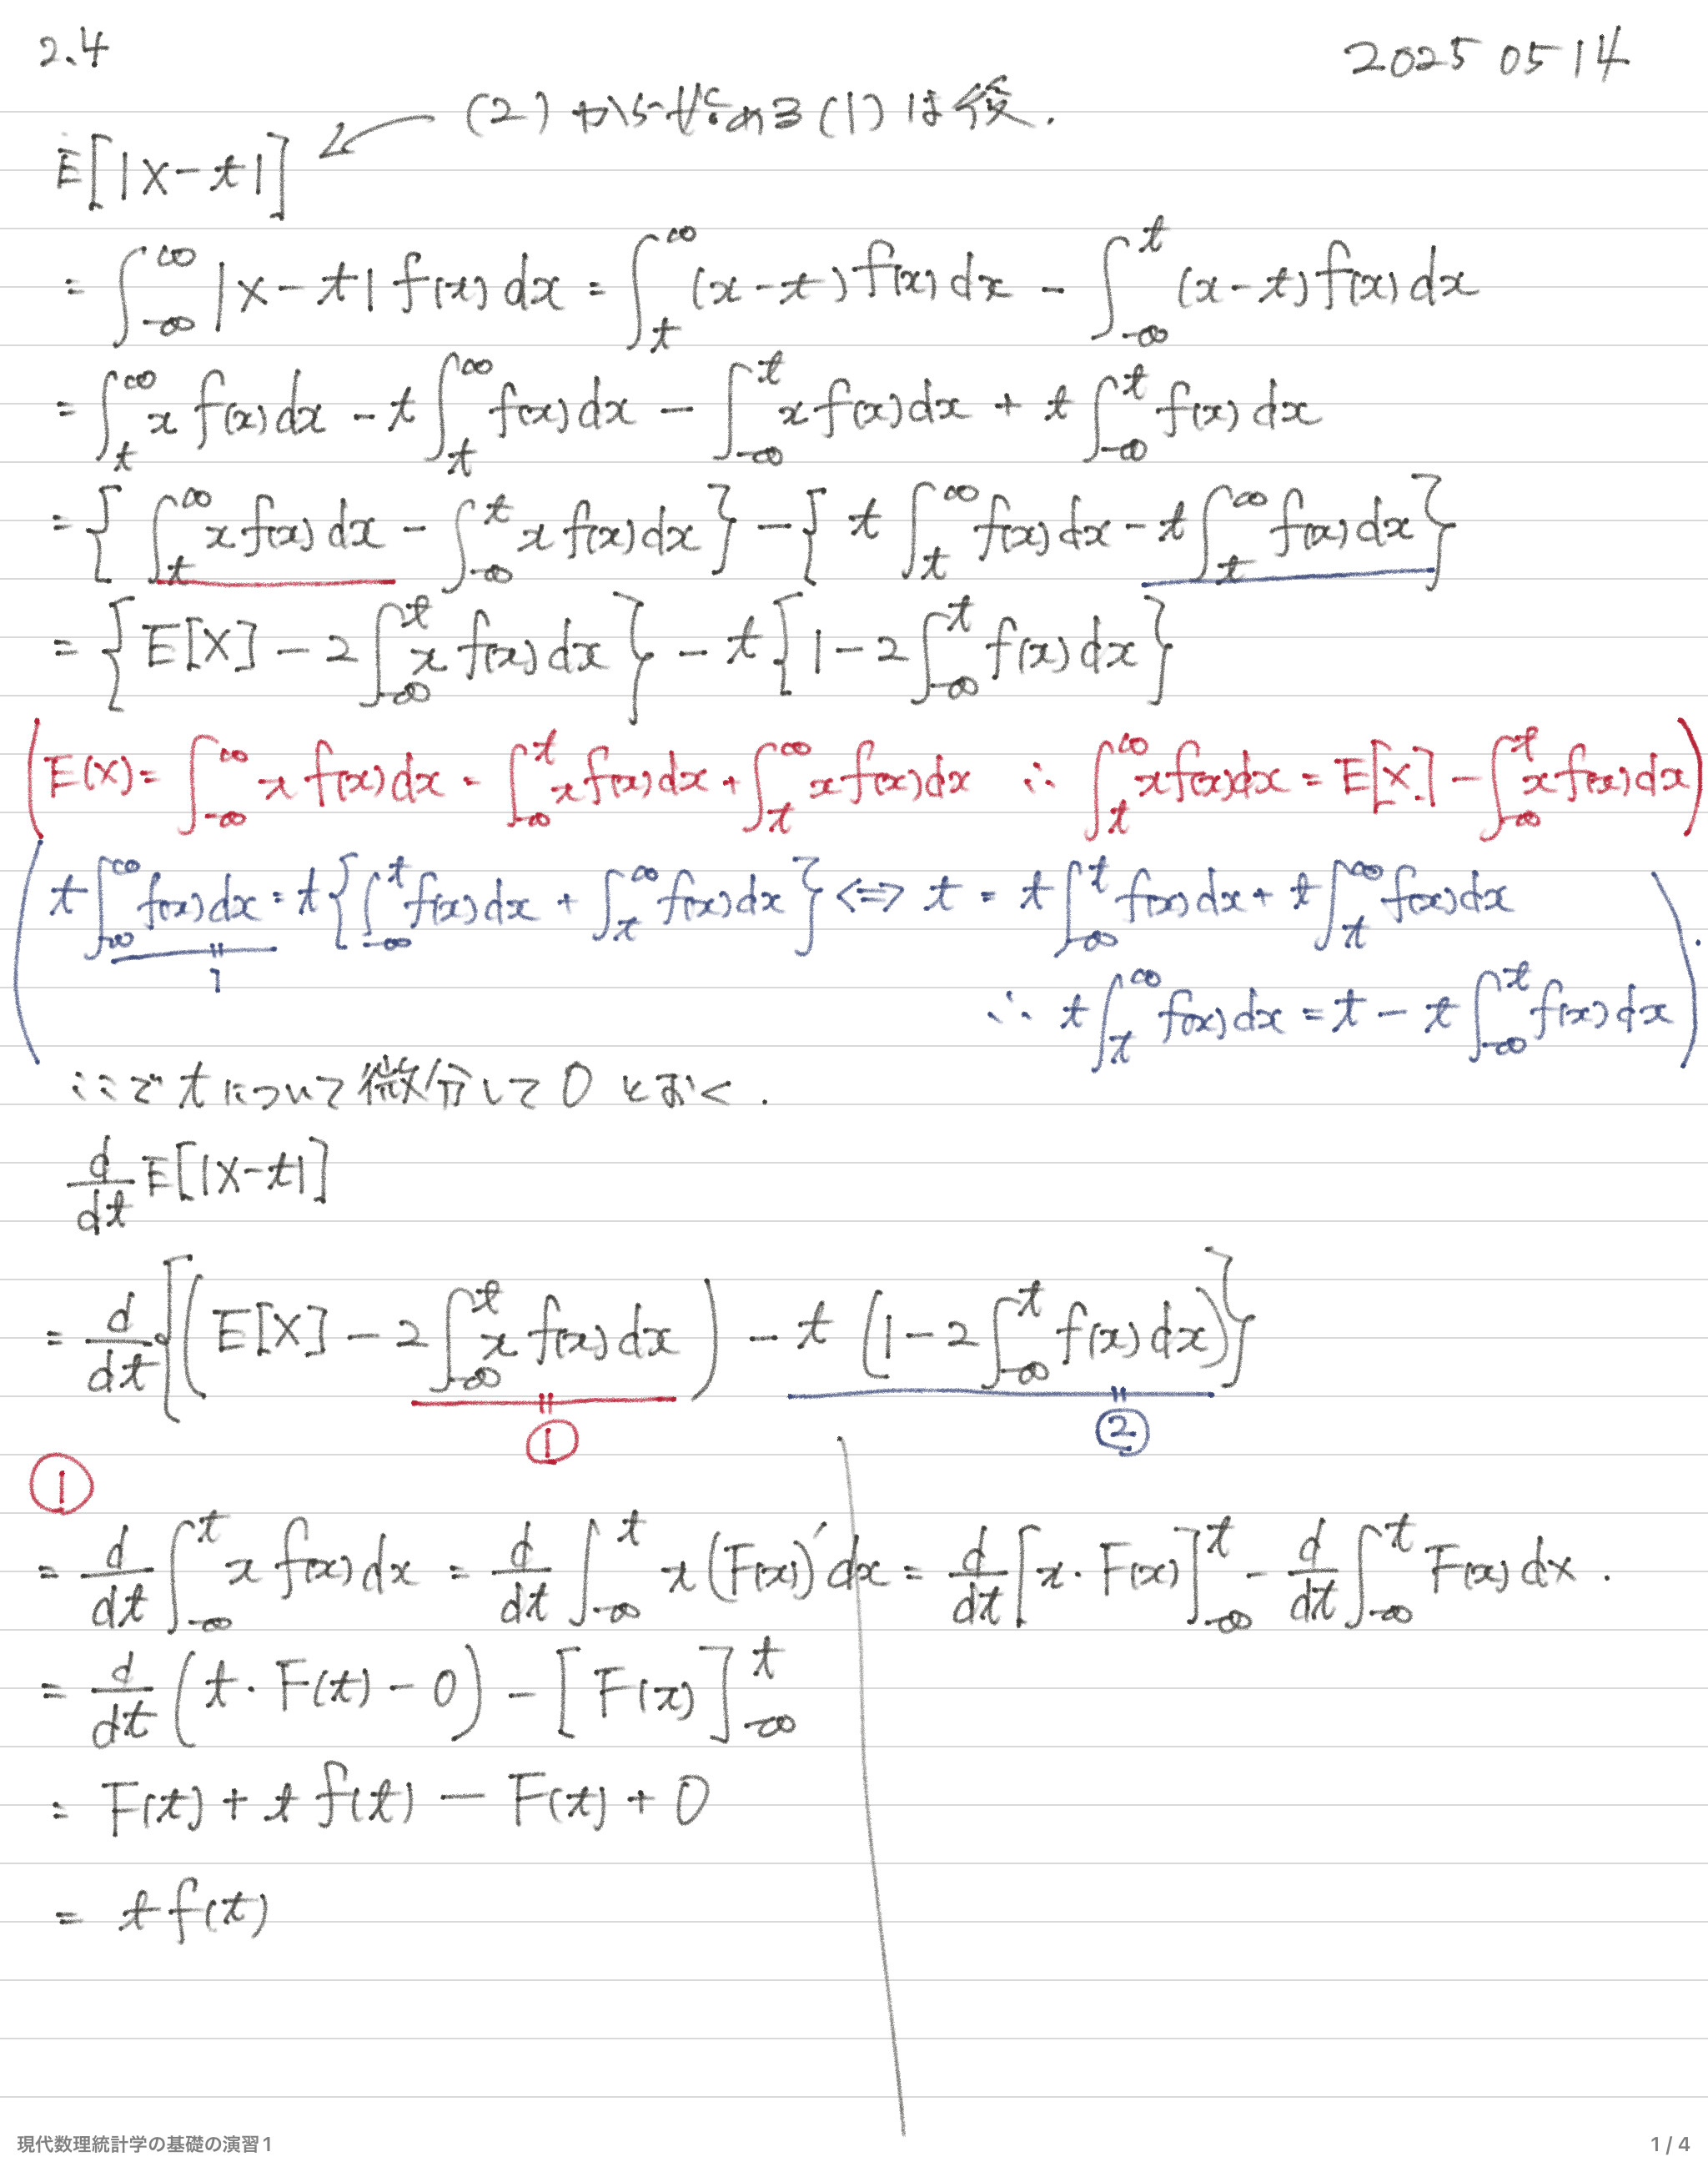 2.4
2025 05 14
(2) から せめる (1) は後.
E[|X-t|]
= ∫_{-∞}^{∞} |x-t| f(x) dx = ∫_{t}^{∞} (x-t) f(x) dx - ∫_{-∞}^{t} (x-t) f(x) dx
= ∫_{t}^{∞} x f(x) dx - t ∫_{t}^{∞} f(x) dx - ∫_{-∞}^{t} x f(x) dx + t ∫_{-∞}^{t} f(x) dx
= { ∫_{t}^{∞} x f(x) dx - ∫_{-∞}^{t} x f(x) dx } - { t ∫_{t}^{∞} f(x) dx - t ∫_{t}^{∞} f(x) dx }
= { E[X] - 2 ∫_{-∞}^{t} x f(x) dx } - t { 1 - 2 ∫_{-∞}^{t} f(x) dx }
( E(X) = ∫_{-∞}^{∞} x f(x) dx = ∫_{-∞}^{t} x f(x) dx + ∫_{t}^{∞} x f(x) dx ∴ ∫_{t}^{∞} x f(x) dx = E[X] - ∫_{-∞}^{t} x f(x) dx )
( t ∫_{-∞}^{∞} f(x) dx = t { ∫_{-∞}^{t} f(x) dx + ∫_{t}^{∞} f(x) dx } ⟺ t = t ∫_{-∞}^{t} f(x) dx + t ∫_{t}^{∞} f(x) dx
=
1
∴ t ∫_{t}^{∞} f(x) dx = t - t ∫_{-∞}^{t} f(x) dx ).
ここで t について 微分して 0 とおく.
d/dt E[|X-t|]
= d/dt { ( E[X] - 2 ∫_{-∞}^{t} x f(x) dx ) - t ( 1 - 2 ∫_{-∞}^{t} f(x) dx ) }
= ① = ②
①
= d/dt ∫_{-∞}^{t} x f(x) dx = d/dt ∫_{-∞}^{t} x (F(x))' dx = d/dt [x・F(x)]_{-∞}^{t} - d/dt ∫_{-∞}^{t} F(x) dx .
= d/dt ( t・F(t) - 0 ) - [F(x)]_{-∞}^{t}
= F(t) + t f(t) - F(t) + 0
= t f(t)
現代数理統計学の基礎の演習1
1 / 4